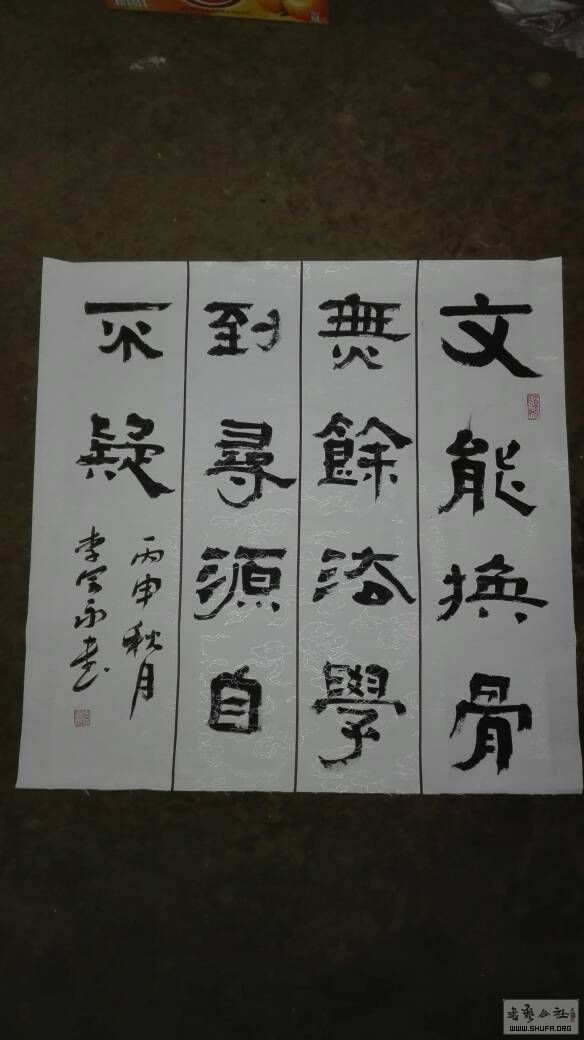 文能換骨
無餘法學
到尋源自
不疑
丙申秋月
李永书
書藝公社
WWW.SHUFA.ORG